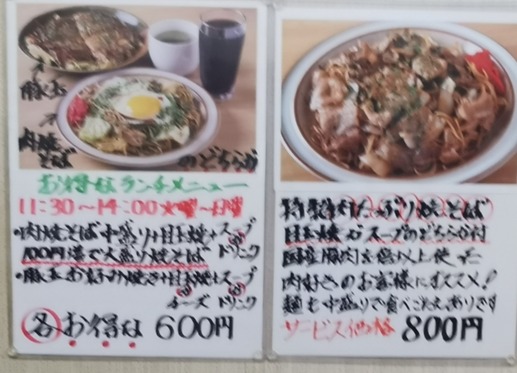 豚玉
肉焼そば
のどちらか
お得なランチメニュー
11:30〜14:00 火曜〜日曜
・肉焼そば中盛り+目玉焼+スープorドリンク
100円増で大盛り焼そば
・豚玉お好み焼き+目玉焼+スープ
チーズ ドリンク
各お得な 600円
特製肉たっぷり焼そば
目玉焼かスープのどちらか付
国産豚肉を 以上使った
肉好きのお客様にオススメ!
麺も中盛りで食べごたえありです
サービス価格 800円